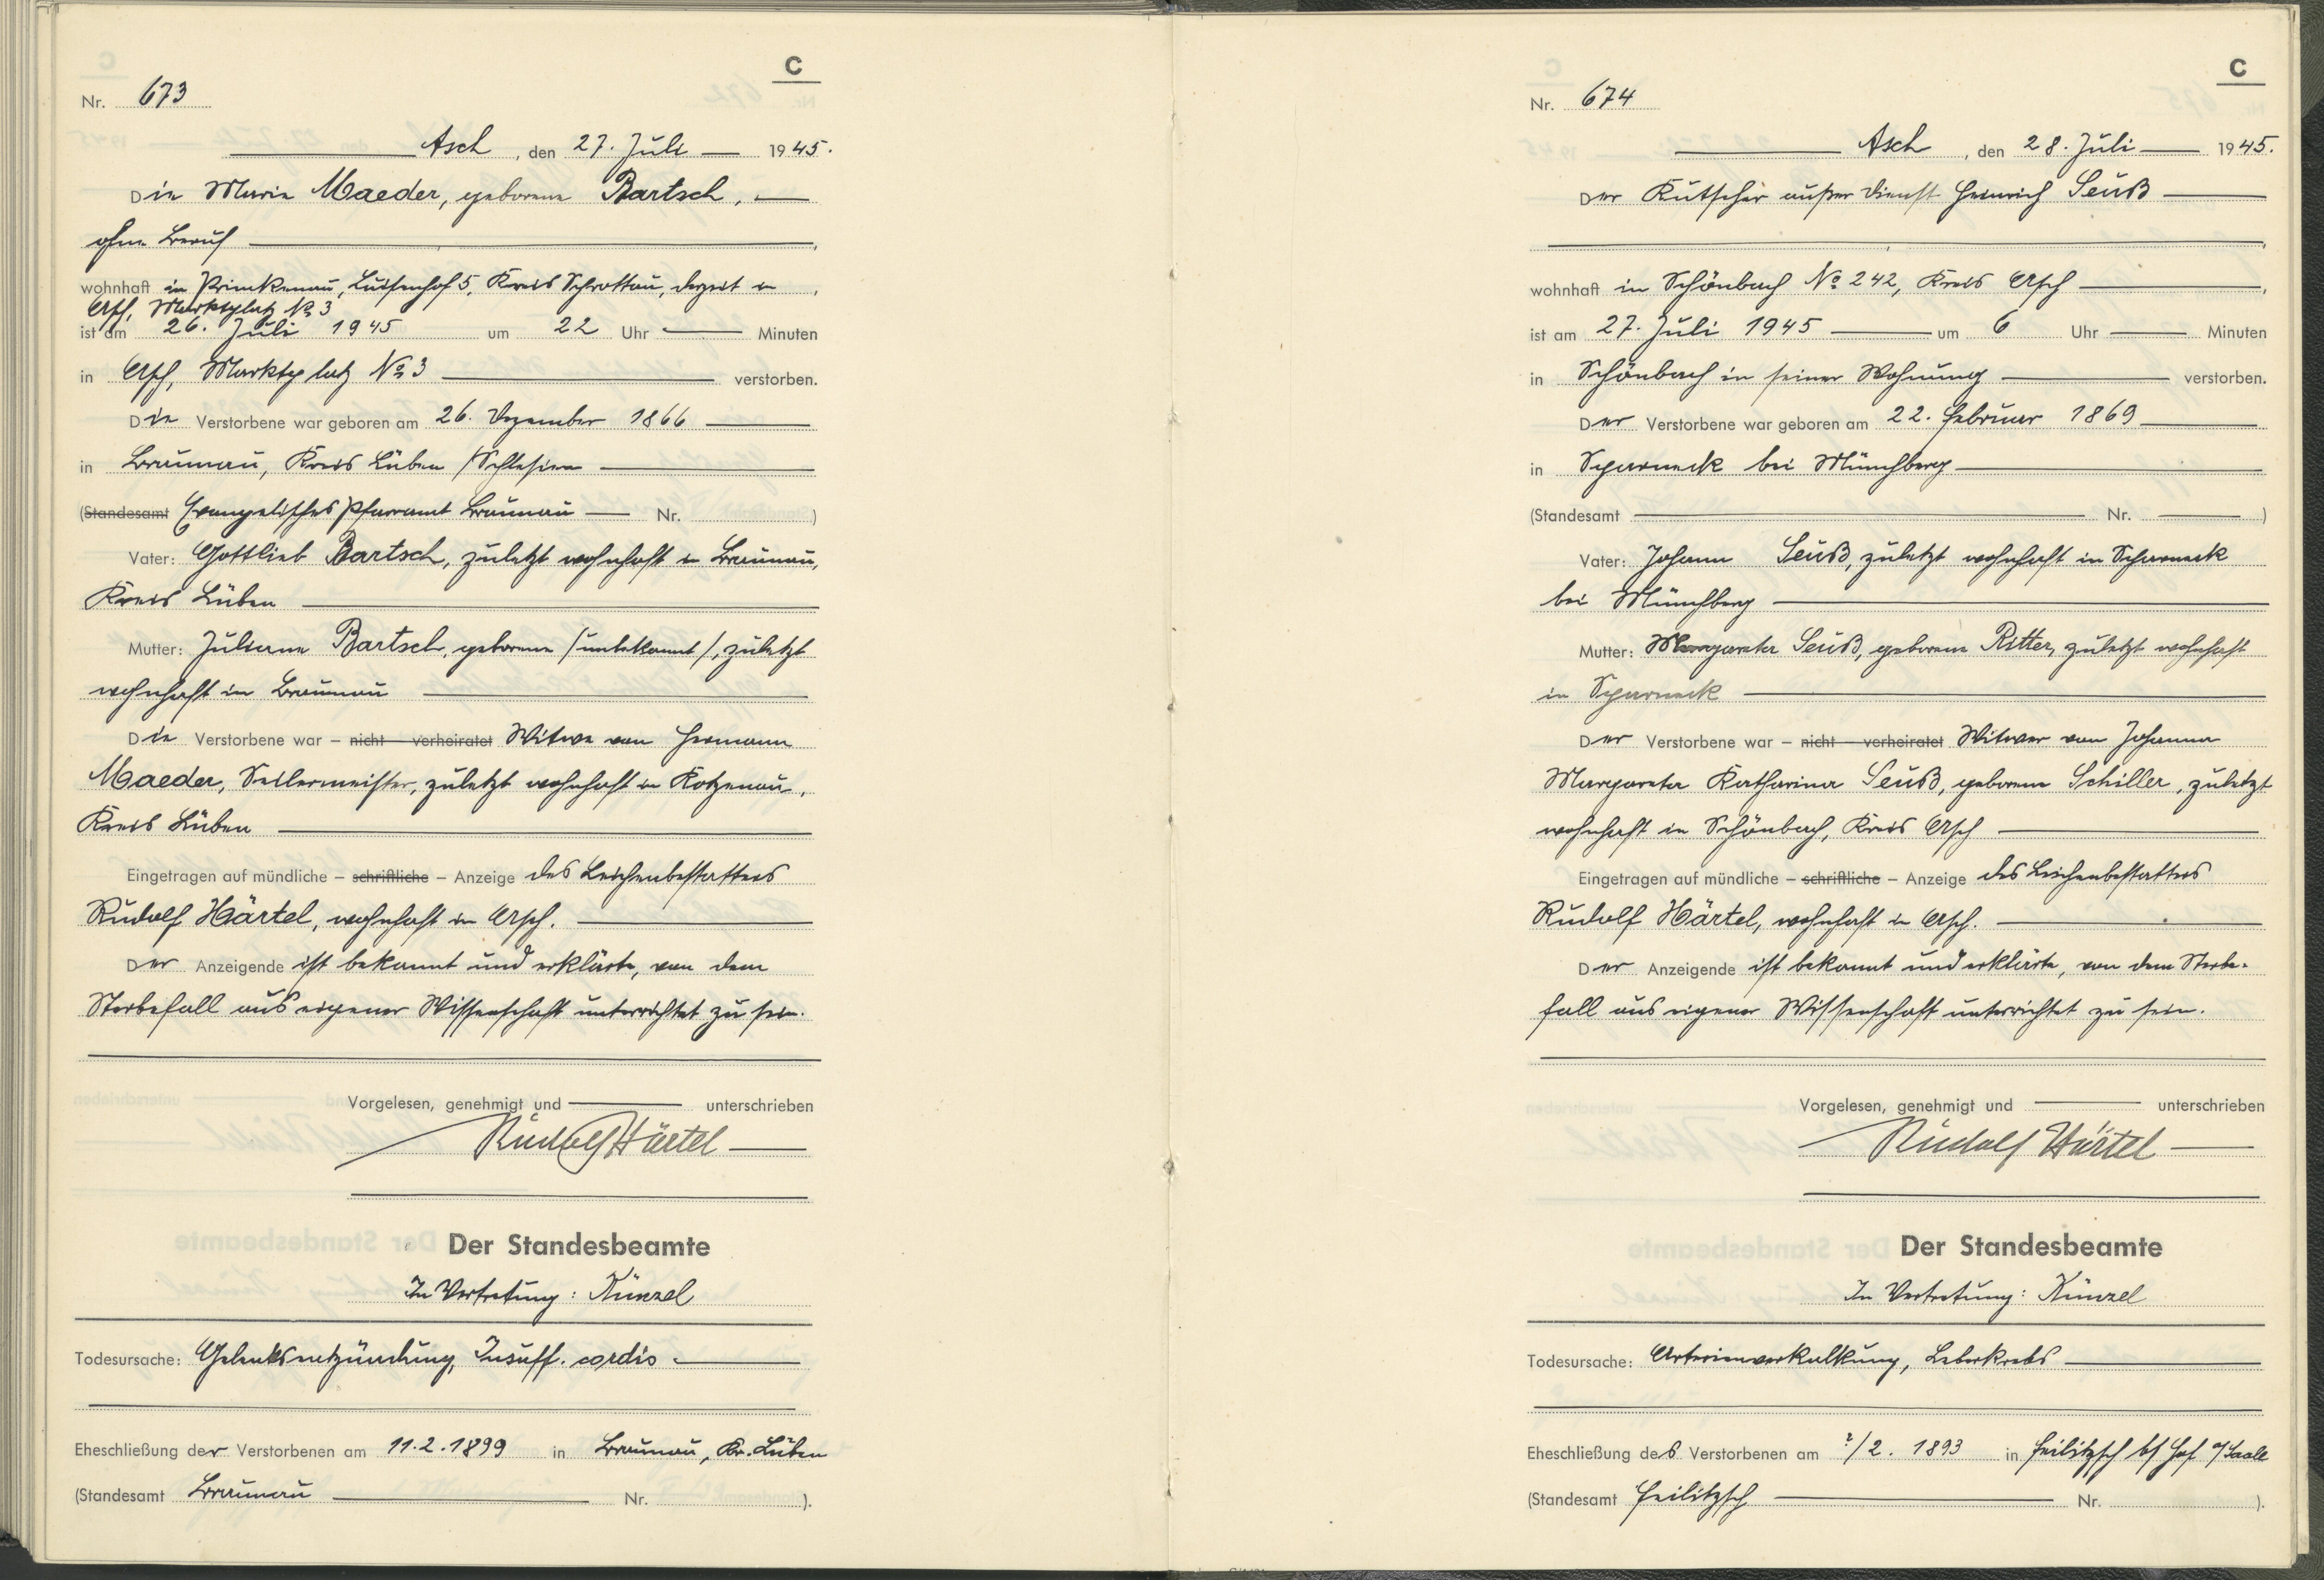 C
Nr. 673
Asch, den 27. Juli 1945.
Die Marie Maeder, geborene Bartsch,
ohne Beruf,
wohnhaft in Primkenau, Luisenhof 5, Kreis Sprottau, derzeit in,
Asch, Marktplatz No 3
ist am 26. Juli 1945 um 22 Uhr Minuten
in Asch, Marktplatz No 3 verstorben.
Die Verstorbene war geboren am 26. Dezember 1866
in Braunau, Kreis Lüben / Schlesien
(Standesamt Evangelisches Pfarramt Braunau Nr. )
Vater: Gottlieb Bartsch, zuletzt wohnhaft in Braunau,
Kreis Lüben
Mutter: Juliane Bartsch, geborene /unbekannt/, zuletzt
wohnhaft in Braunau
Die Verstorbene war – nicht verheiratet Witwe von Hermann
Maeder, Seilermeister, zuletzt wohnhaft in Kotzenau,
Kreis Lüben
Eingetragen auf mündliche – schriftliche – Anzeige des Leichenbestatters
Rudolf Härtel, wohnhaft in Asch.
Der Anzeigende ist bekannt und erklärte, von dem
Sterbefall aus eigener Wissenschaft unterrichtet zu sein.
Vorgelesen, genehmigt und unterschrieben
Rudolf Härtel
Der Standesbeamte
In Vertretung: Künzel
Todesursache: Gelenksentzündung, Insuff. cordis
Eheschließung der Verstorbenen am 11.2.1899 in Braunau, Kr. Lüben
(Standesamt Braunau Nr. ).
C
Nr. 674
Asch, den 28. Juli 1945.
Der Kutscher außer Dienst Heinrich Seuß
,
wohnhaft in Schönbach No 242, Kreis Asch,
ist am 27. Juli 1945 um 6 Uhr Minuten
in Schönbach in seiner Wohnung verstorben.
Der Verstorbene war geboren am 22. Februar 1869
in Sparneck bei Münchberg
(Standesamt Nr. )
Vater: Johann Seuß, zuletzt wohnhaft in Sparneck
bei Münchberg
Mutter: Margareta Seuß, geborene Ritter, zuletzt wohnhaft
in Sparneck
Der Verstorbene war – nicht verheiratet Witwer von Johanna
Margareta Katharina Seuß, geborene Schiller, zuletzt
wohnhaft in Schönbach, Kreis Asch
Eingetragen auf mündliche – schriftliche – Anzeige des Leichenbestatters
Rudolf Härtel, wohnhaft in Asch.
Der Anzeigende ist bekannt und erklärte, von dem Sterbe-
fall aus eigener Wissenschaft unterrichtet zu sein.
Vorgelesen, genehmigt und unterschrieben
Rudolf Härtel
Der Standesbeamte
In Vertretung: Künzel
Todesursache: Arterienverkalkung, Leberkrebs
Eheschließung des Verstorbenen am ?/2. 1893 in Feilitzsch b/ Hof a/Saale
(Standesamt Feilitzsch Nr. ).